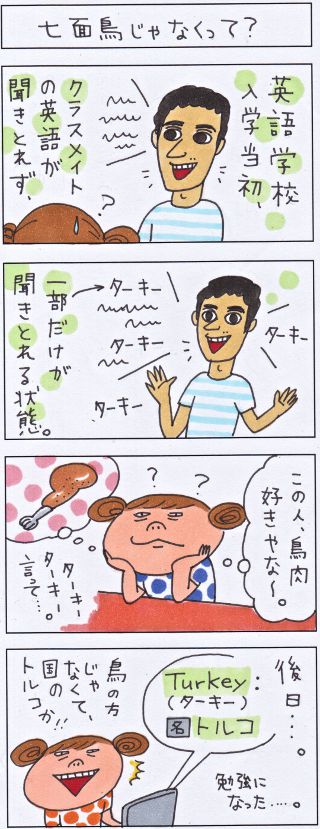 七面鳥じゃなくって？
英語学校
入学当初、
クラスメイト
の英語が
聞きとれず、
？
ターキー
ターキー
ターキー
ターキー
一部だけが
聞きとれる状態。
この人、鳥肉
好きやな〜。
？
？
ターキー
ターキー
言って…。
後日…。
Turkey：
(ターキー)
名 トルコ
鳥の方
じゃ
なくて、
国の
トルコか!!
勉強に
なった……。